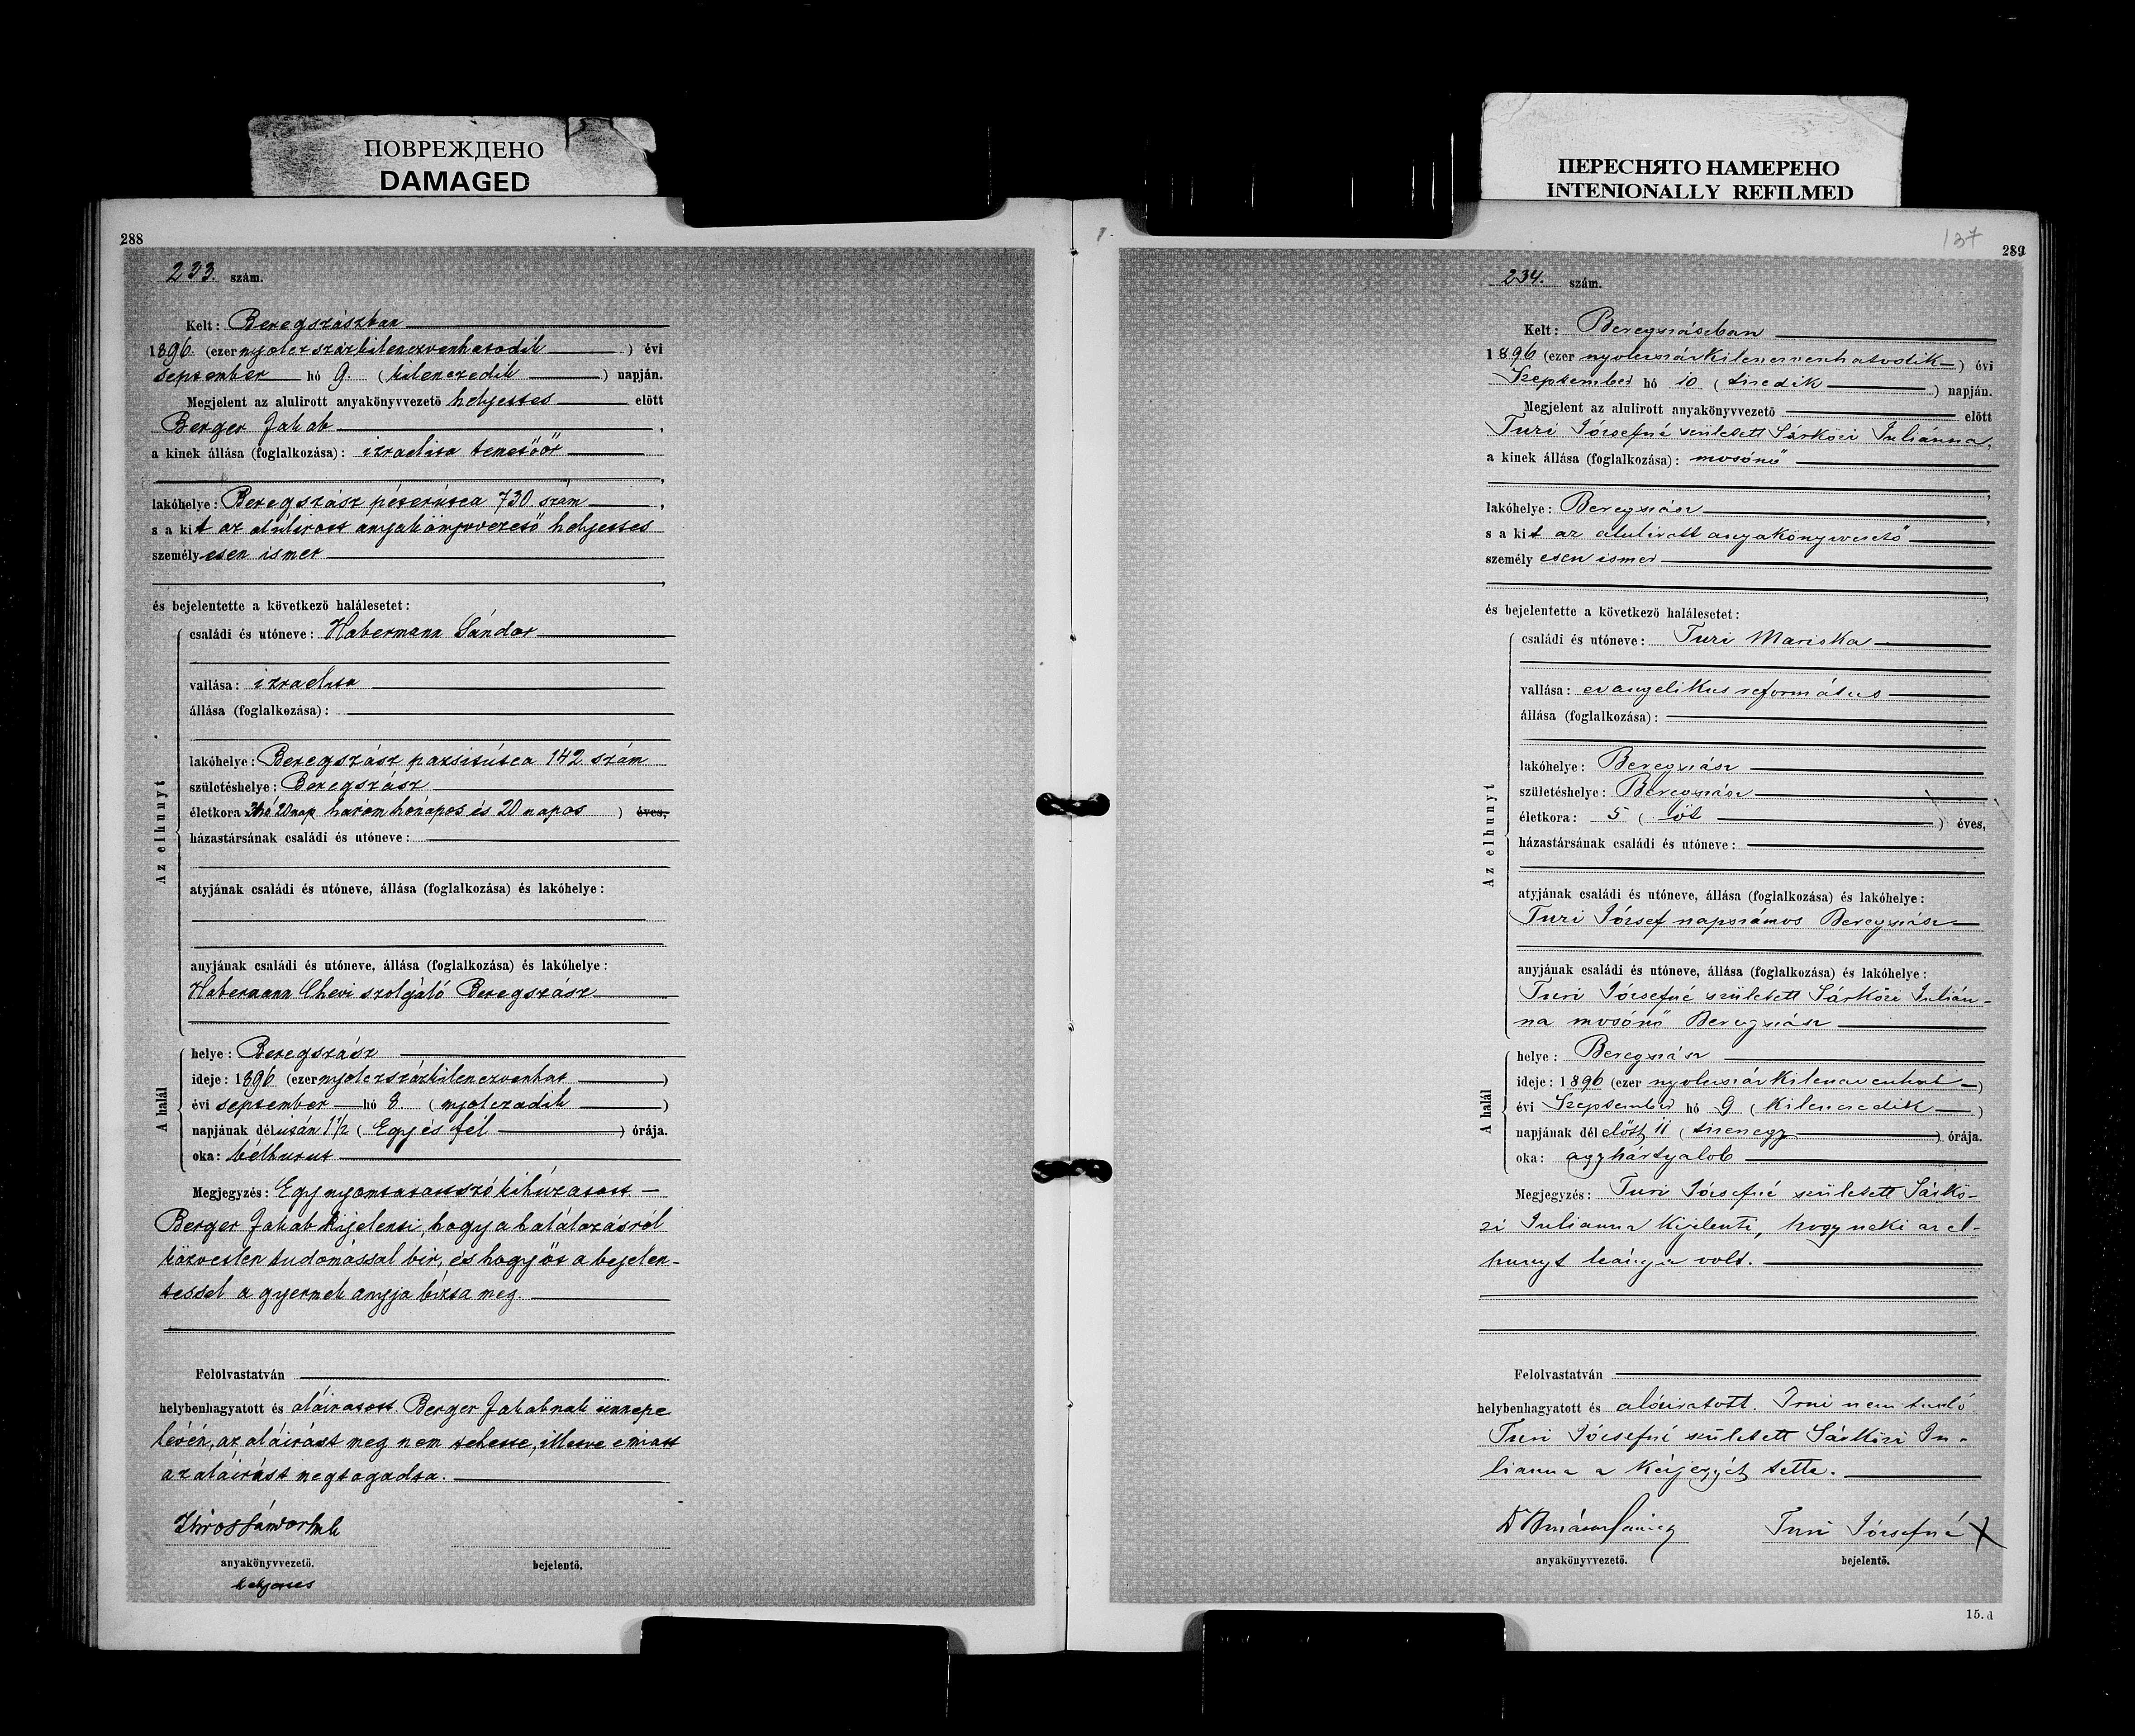 ПОВРЕЖДЕНО
DAMAGED
288
233. szám.
Kelt: Beregszászban
1896. (ezer nyolczszázkilenczvenhatodik) évi
september hó 9. (kilenczedik) napján.
Megjelent az alulirott anyakönyvvezető helyettes előtt
Berger Jakab,
a kinek állása (foglalkozása): izraelita temetőőr
,
lakóhelye: Beregszász péterútca 730 szám,
s a kit az alúlirott anyakönyvvezető helyettes
személyesen ismer
,
és bejelentette a következő halálesetet:
Az elhunyt
családi és utóneve: Habermann Sándor
vallása: izraelita
állása (foglalkozása):
lakóhelye: Beregszász parsitútca 142 szám
születéshelye: Beregszász
életkora 3hó 20nap három honapos és 20 napos) éves,
házastársának családi és utóneve:
atyjának családi és utóneve, állása (foglalkozása) és lakóhelye:
anyjának családi és utóneve, állása (foglalkozása) és lakóhelye:
Habermann Chevi szolgáló Beregszász
A halál
helye: Beregszász
ideje: 1896 (ezer nyolczszázkilenczvenhat)
évi september hó 8. (nyolczadik)
napjának délután 1½ (Egy és fél) órája.
oka: bélhurut
Megjegyzés: Egy nyomtatott szó kihúzatott. —
Berger Jakab kijelenti, hogy a halálozásról
közvetlen tudomással bir, és hogy őt a bejelen-
téssel a gyermek anyja bízta meg.
Felolvastatván
helybenhagyatott és aláiratott. Berger Jakabnak ünnepe
lévén, az aláirást meg nem tehette, illetve emiatt
az aláirást megtagadta.
anyakönyvvezető.
helyettes
bejelentő.
ПЕРЕСНЯТО НАМЕРЕНО
INTENIONALLY REFILMED
137
289
234. szám.
Kelt: Beregszászban
1896 (ezer nyolcszázkilencvenhatodik) évi
Szeptember hó 10 (tizedik) napján.
Megjelent az alulirott anyakönyvvezető előtt
Turi Józsefné született Sárközi Juliánna,
a kinek állása (foglalkozása): mosónő
,
lakóhelye: Beregszász,
s a kit az alulirott anyakönyvvezető
személyesen ismer
,
és bejelentette a következő halálesetet:
Az elhunyt
családi és utóneve: Turi Mariska
vallása: evangelikus református
állása (foglalkozása):
lakóhelye: Beregszász
születéshelye: Beregszász
életkora: 5 (öt) éves,
házastársának családi és utóneve:
atyjának családi és utóneve, állása (foglalkozása) és lakóhelye:
Turi József napszámos Beregszász
anyjának családi és utóneve, állása (foglalkozása) és lakóhelye:
Turi Józsefné született Sárközi Julián-
na mosónő Beregszász
A halál
helye: Beregszász
ideje: 1896 (ezer nyolcszázkilencvenhat)
évi Szeptember hó 9 (kilencedik)
napjának délelőtt 11 (tizenegy) órája.
oka: agyhártyalob
Megjegyzés: Turi Józsefné született Sárkö-
zi Julianna kijelenti, hogy neki az el-
hunyt leánya volt.
Felolvastatván
helybenhagyatott és aláiratott. Irni nem tudó
Turi Józsefné született Sárközi Ju-
lianna a kézjegyét tette.
Turi Józsefné X
anyakönyvvezető.
bejelentő.
15. d